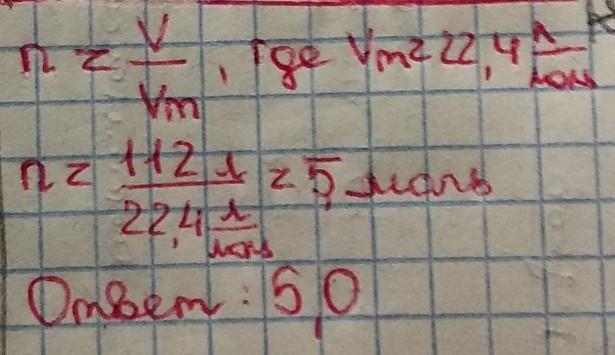 n = V/Vm, где Vm = 22,4 л/моль
n = 112 л / 22,4 л/моль = 5 моль
Ответ: 5,0